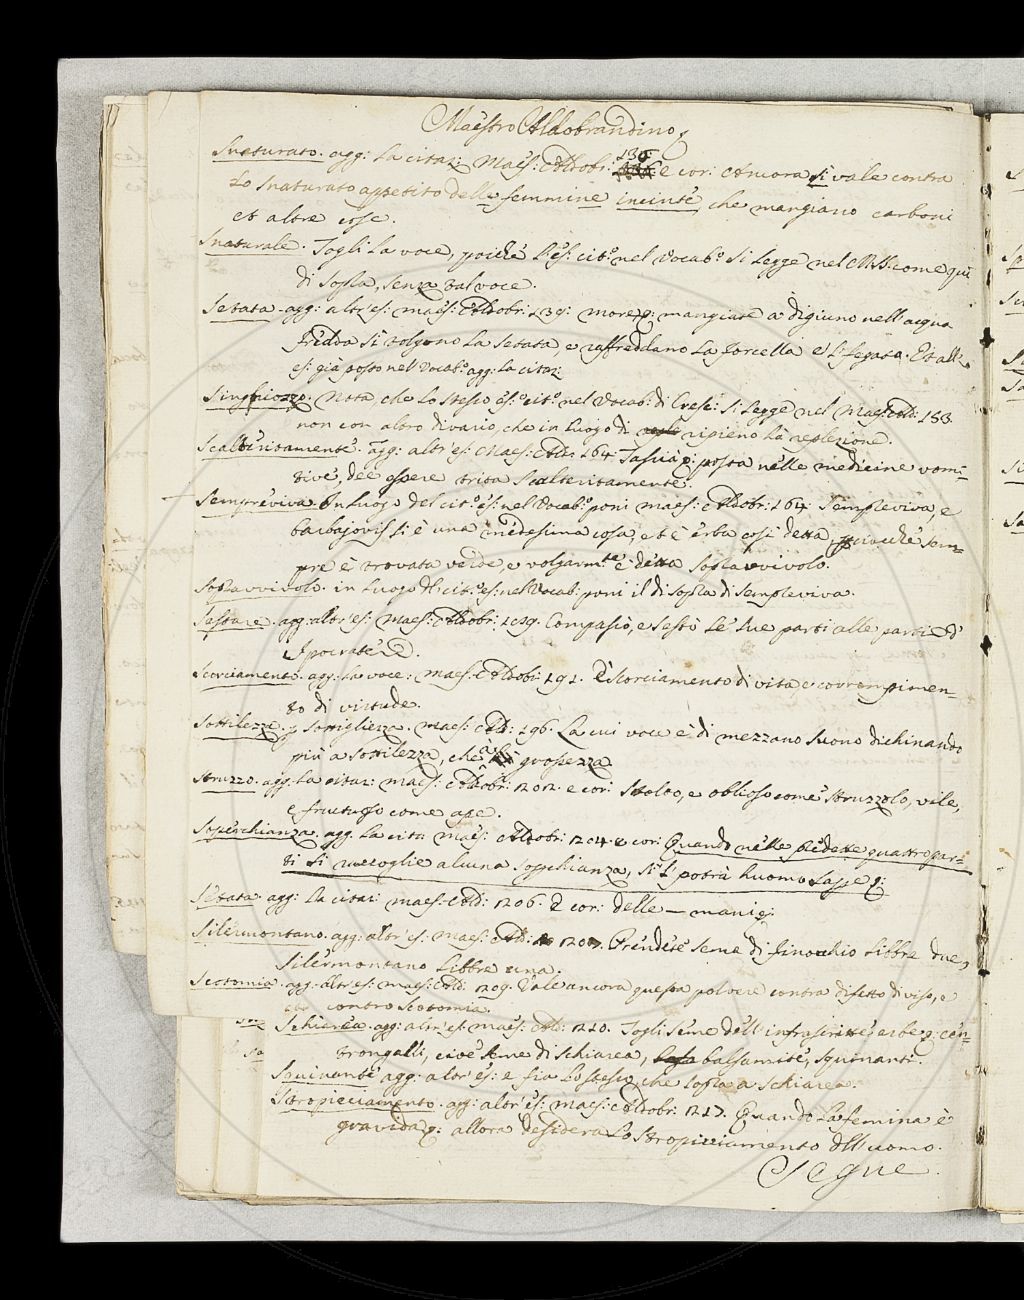 Maestro Aldobrandino
Snaturato. agg: la citaz: Maes: Aldobr: 130 e cor: Ancora si vale contra
lo snaturato appetito delle femmine incinte che mangiano carboni
et altre cose.
Snaturale. Togli la voce, poiché l'es: cit.o nel Vocab.o si legge nel MS. come qui
di sopra, senza tal voce.
Setata. agg: altr'es: maes: Aldobr: 139: mangiare a digiuno nell'acqua
fredda si tolgono la setata, e raffreddano la forcella e 'l fegato. Et all'
es: già posto nel Vocab.o agg: la citaz:
Singhiozzo. Nota che lo stesso es: cit.o nel Vocab: di Cresc: si legge nel Maes: Ald: 153
non con altro divario, che in luogo di ripieno ha replezione.
Scalteritamente. agg: altr'es: Maes: Ald: 164 posta nelle medicine vomi-
tive, dee essere trita scalteritamente.
Sempreviva. In luogo del cit.o es: nel Vocab.o poni maes: Aldobr: 164 Sempleviva, e
barbajovis si è una medesima cosa, et è erba così detta perciocché sem-
pre è trovata verde, e volgarm.te è detta sopravvivolo.
Sopravvivolo. in luogo del cit.o es: nel Vocab: poni il di sopra di sempleviva.
Sestare. agg: altr'es: maes: Aldobr: Compasiò, e sestò le due parti alle parti d'
Ipocrate.
Scorciamento. agg: la voce: maes: Aldobr: 191. È scorciamento di vita, e corrompimen-
to di virtude.
Sottilezza. p sottigliezza. maes: Ald: 196. La cui voce è di mezzano suono dichinando
più a sottilezza, che a grossezza
Struzzo. agg: la citaz: maes: Aldobr: 1202. e cor: Stolto, e oblioso come struzzolo, vile,
e fruttuoso come ape.
Soperchianza. agg. la cita: maes: Aldobr: 1204. e cor: Quando nelle predette quattro par-
ti si raccoglie alcuna soperchianza, si 'l potrà huomo sapere p:
Setata. agg: la citaz: maes: Ald: 1206. E cor: delle — mani p:
Silermontano. agg: altr'es: maes: Ald: 1207. Prendete seme di finocchio libbre due,
Silermontano libbre una.
Scotomia. agg. altr'es: maes: Ald: 1209. Vale ancora questa polvere contra difetto di viso, e
contro scotomia.
Schiarea. agg: altr'es: maes: Ald: 1210. Togli seme dell'infrascritte erbe p: cen-
trongalli, cioè seme di schiarea, balsamite, squinanti.
Squinante agg: altr'es: e sia lo stesso che sopra a schiarea.
Stropicciamento. agg: altr'es: maes: Aldobr: 1217. Quando la femina è
gravida p: allora desidera lo stropicciamento dell'uomo.
Segue